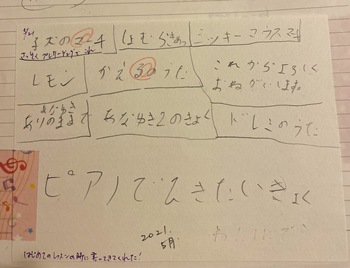 ミッキーマウスマーチ
レモン
かえるのうた
これからよろしく
おねがいします。
ありのままで
あなゆき2のきょく
ドレミのうた
ピアノでひきたいきょく
2021.
5月
はじめてのレッスンの時に書いてきてくれた!